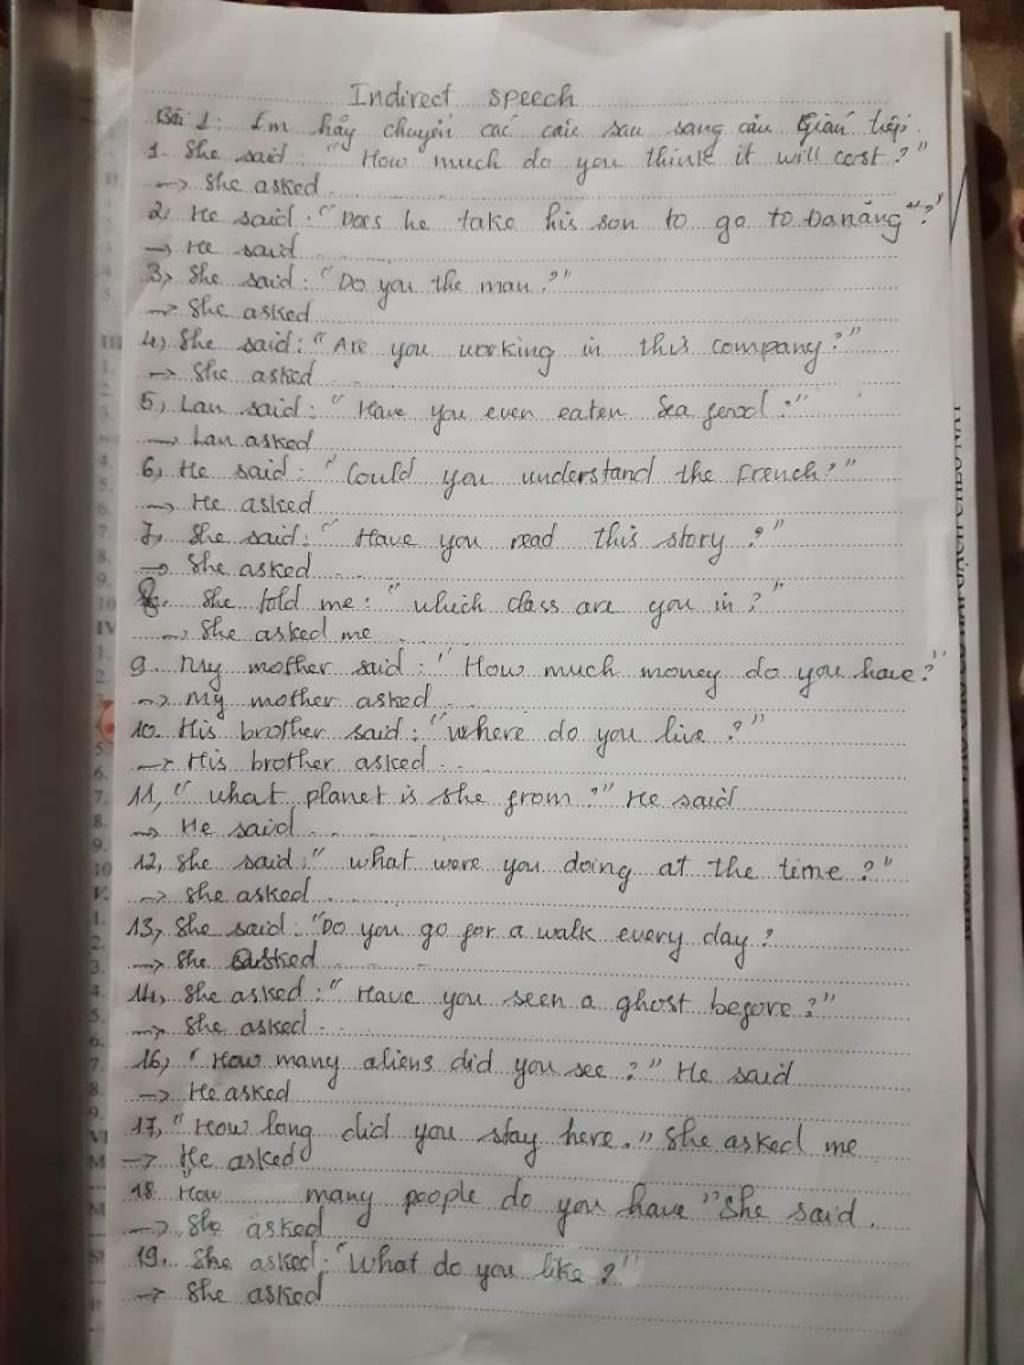 Indirect speech
Bài 1: Em hãy chuyển các câu sau sang câu gián tiếp.
1. She said: "How much do you think it will cost?"
→ She asked
2, He said: "Does he take his son to go to Danang"?"
→ He said
3, She said: "Do you the man?"
→ She asked
4, She said: "Are you working in this company?"
→ She asked
5, Lan said: "Have you even eaten Sea food?"
→ Lan asked
6, He said: "Could you understand the French?"
→ He asked
7, She said: "Have you read this story?"
→ She asked
8. She told me: "which class are you in?"
→ She asked me
9. My mother said: "How much money do you have?"
→ My mother asked
10. His brother said: "where do you live?"
→ His brother asked
11, "what planet is she from?" He said
→ He said
12, She said: "what were you doing at the time?"
→ She asked
13, She said: "Do you go for a walk every day?
→ She asked
14, She asked: "Have you seen a ghost before?"
→ She asked
16, "How many aliens did you see?" He said
→ He asked
17, "How long did you stay here." She asked me
→ He asked
18 "How many people do you have" She said.
→ She asked
19. She asked: "What do you like?"
→ She asked